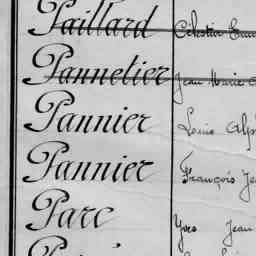 Paillard Célestin
Pannetier Jean Marie
Pannier Louis
Pannier François
Parc Yves Jean